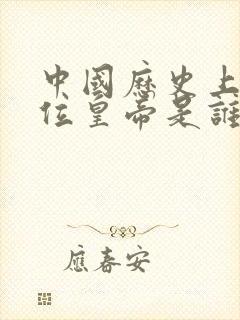 中國歷史上
位皇帝是誰
應春安